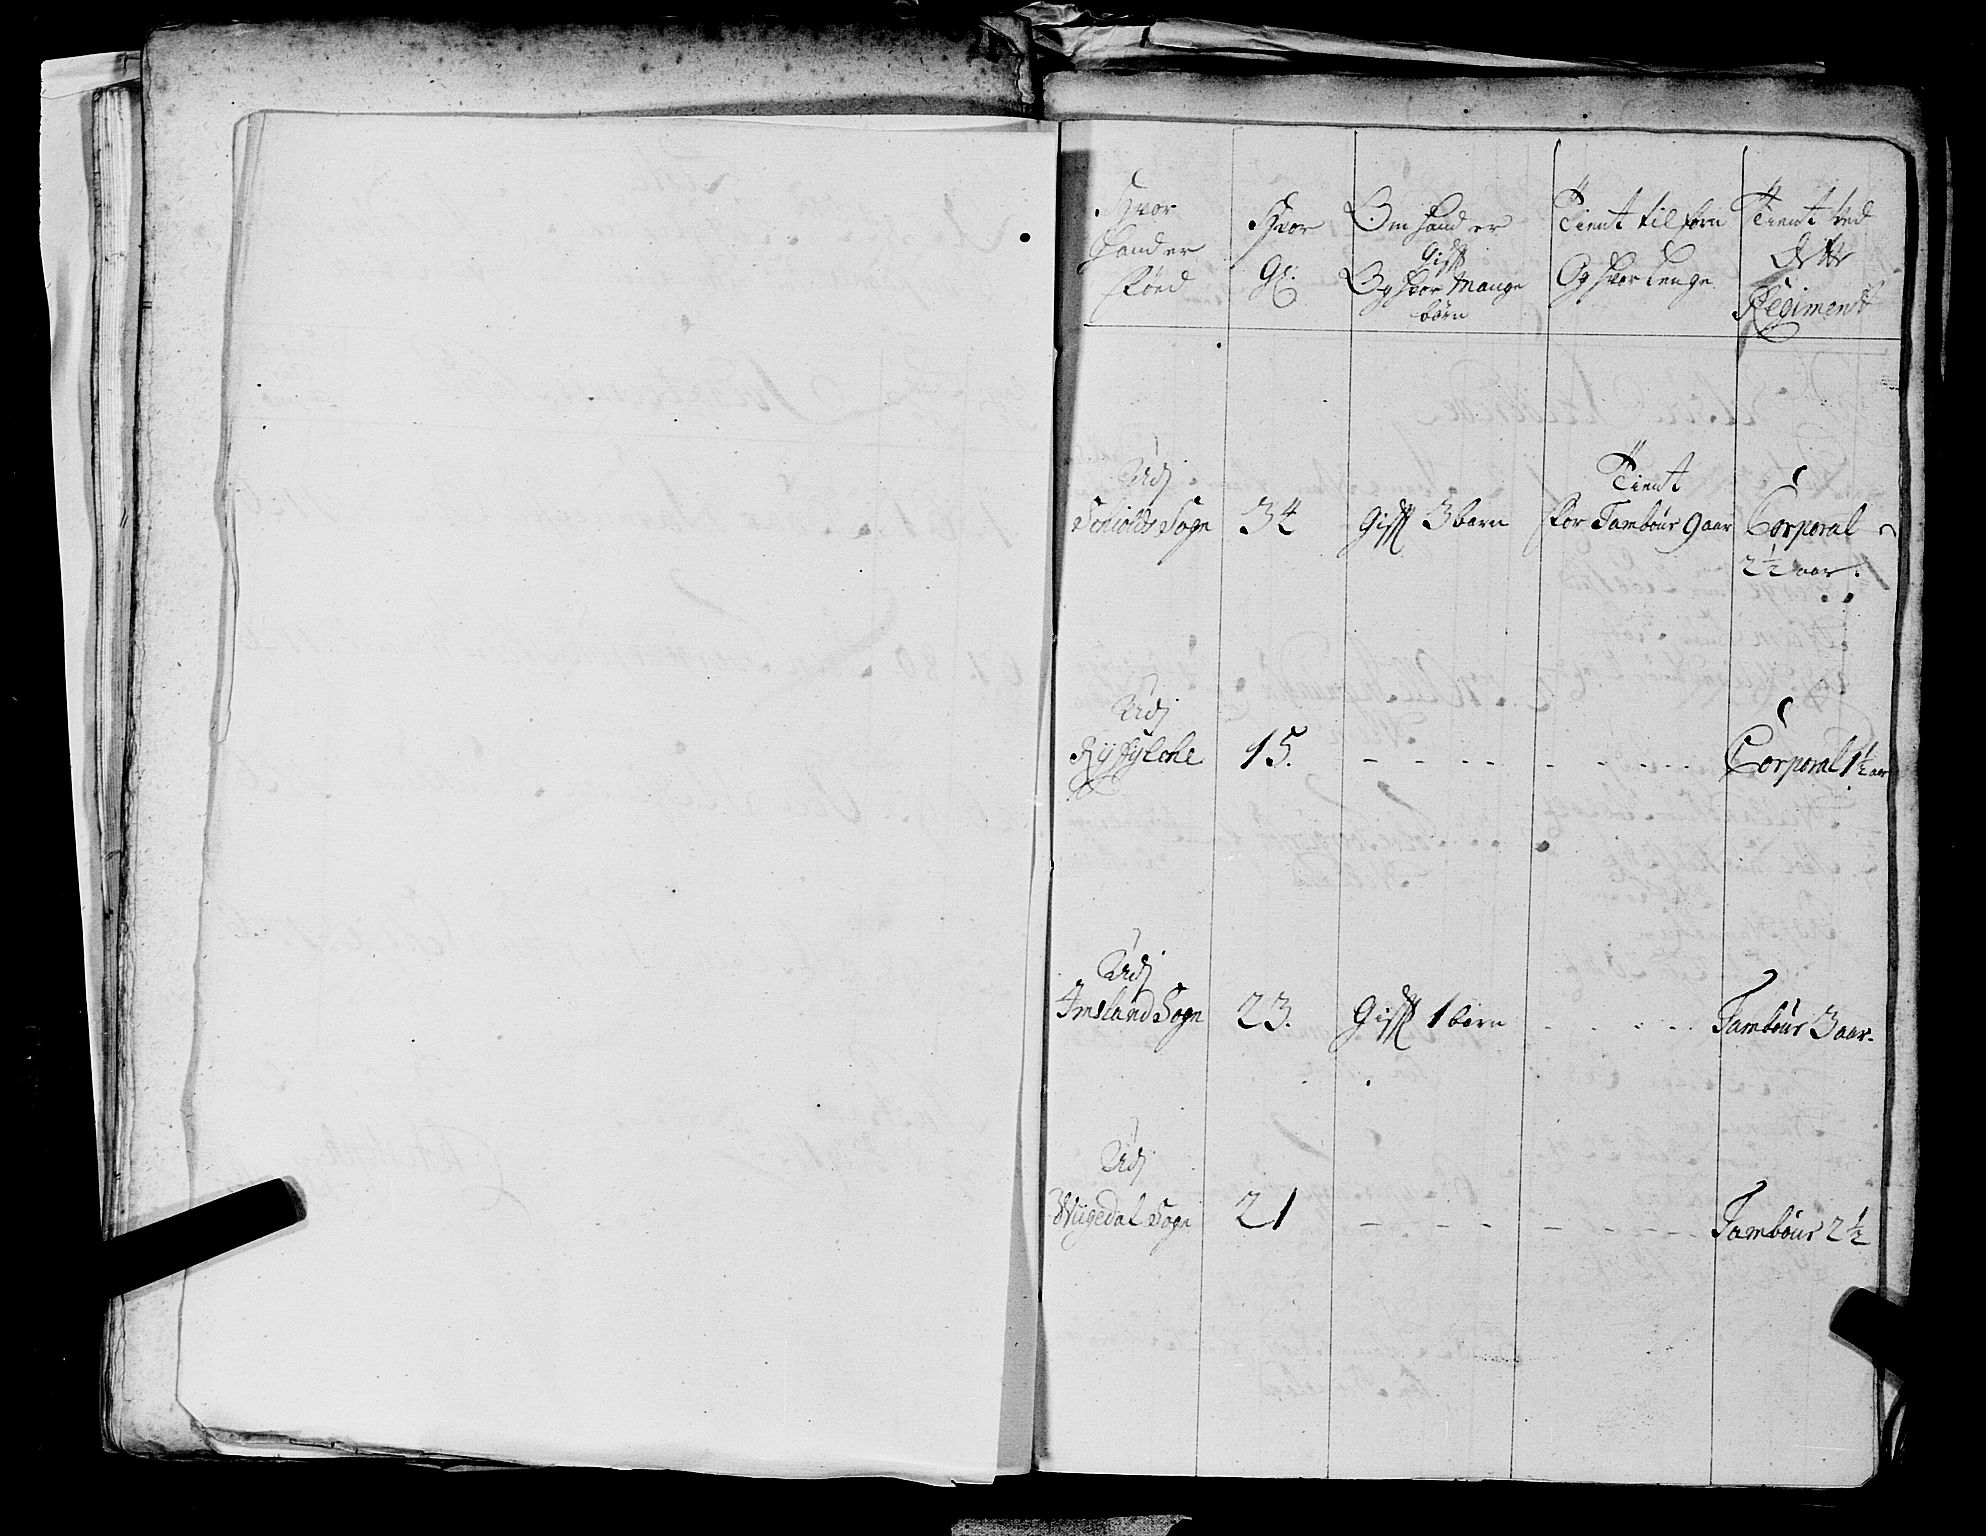 Hvor
hand er
föed
Hvor
Gl:
Om hand er
Gifft
Og hvor Mange
börn
Tient tilforn
Og hvor lenge
Tient ved
dette
Regiment
Udj
Schiolds Sogn
34
Gifft 3 barn
Tient
for Tambour 9 aar
Corporal
2½ aar.
Udj
Ryfylche
15.
Corporal 1½ aar
Udj
Imsland Sogn
23.
Gifft 1 barn
Tambour 3 aar.
Udj
Wigedal Sogn
21
Tambour 2½